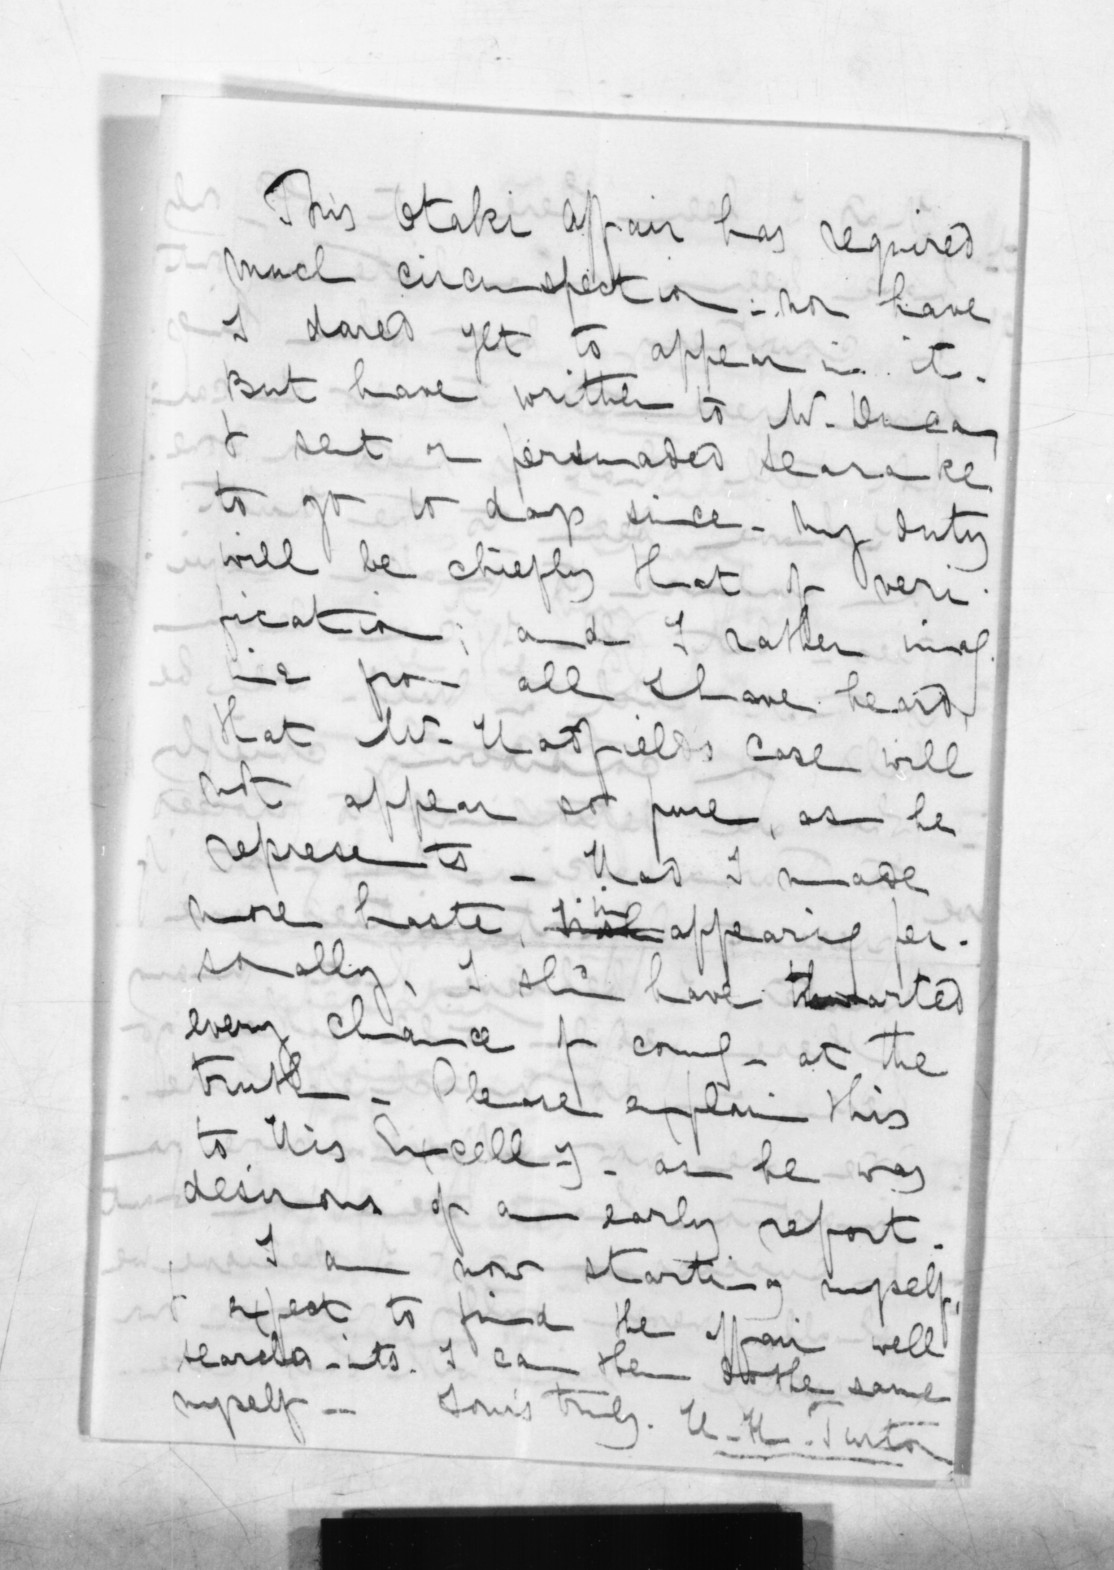 This Otaki Affair has required
much circumspection:- nor have
I dared yet to appear in it.
But have written to Mr. Duncan,
& sent or persuaded Searancke
to go to days since - My duty
will be chiefly that of veri-
fication; and I rather imag-
ine from all I have heard,
that Mr. Hadfield's case will
not appear so pure, as he
represents - Had I made
more haste, in appearing per-
sonally, I shd have thwarted
every chance of coming at the
truth - Please explain this
to His Excelly - as he was
desirous of an early report.
I am now starting myself,
& expect to find the affair well
searched into. I can then do the same
myself - Yours truly. H. H. Turton